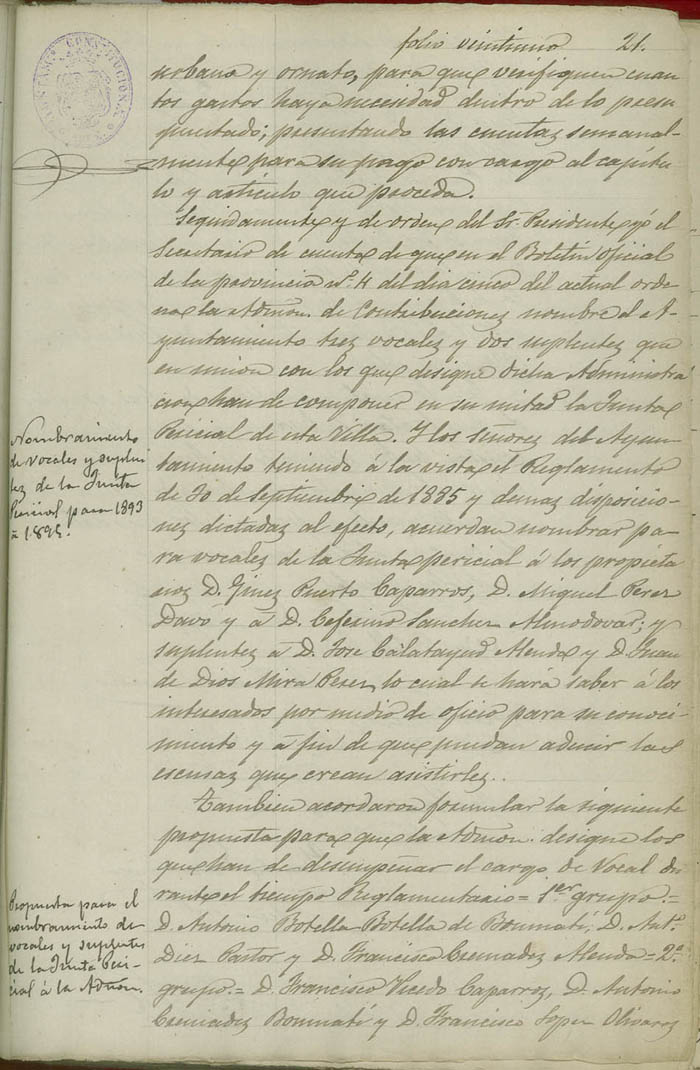 folio veintiuno 21.
urbana y ornato, para que verifiquen cuan
tos gastos haya necesidad dentro de lo presu
puestado; presentando las cuentas semanal-
mente para su pago con cargo al capítu-
lo y artículo que proceda.
Seguidamente y de orden del Sr. Presidente yó el
Secretario dí cuenta de que en el Boletin Oficial
de la provincia nº. 4 del dia cinco del actual orde
na la Admon. de Contribuciones nombre el A-
yuntamiento tres vocales y dos suplentes que
en union con los que designe dicha Administra
cion han de componer en su mitad la Junta
Pericial de esta Villa. Y los señores del Ayun
tamiento teniendo á la vista el Reglamento
de 30 de Septiembre de 1885 y demas disposicio-
nes dictadas al efecto, acuerdan nombrar pa-
ra vocales de la Junta pericial á los propieta
rios D. Ginez Puerto Caparros, D. Miguel Perez
Davó y á D. Ceferino Sanchez Almodovar; y
suplentes á D. Jose Calatayud Alenda y D. Juan
de Dios Mira Perez, lo cual se hará saber á los
interesados por medio de oficio para su conoci-
miento y á fin de que puedan aducir las
escusas que crean asistirles.
Tambien acordaron formular la siguiente
propuesta para que la Admon. designe los
que han de desempeñar el cargo de Vocal du
rante el tiempo Reglamentario = 1er grupo.=
D. Antonio Botella Botella de Bonmatí, D. Antº.
Diez Pastor y D. Francisco Cremades Alenda = 2º
grupo.= D. Francisco Vicedo Caparros, D. Antonio
Cremades Bonmatí y D. Francisco Lopez Olivares
Nombramiento
de vocales y suplen
tes de la Junta
Pericial para 1893
á 1895.
Propuesta para el
nombramiento de
vocales y suplentes
de la Junta Peri-
cial á la Admon.